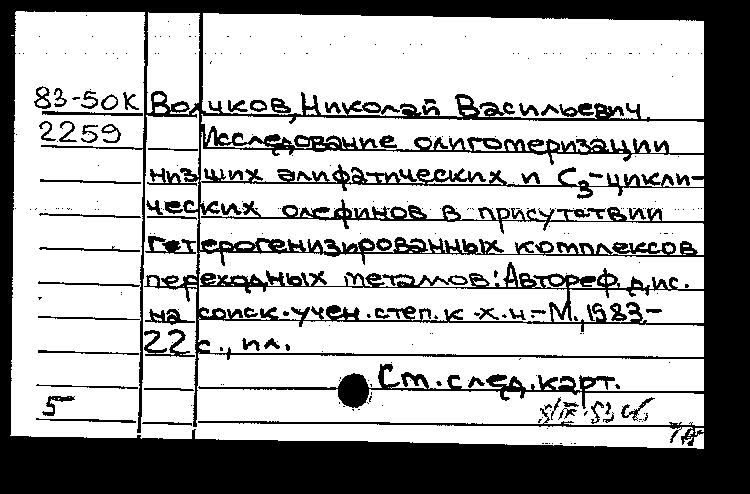 83-50К Волчков, Николай Васильевич.
2259 Исследование олигомеризации
низших алифатических и С3-цикли-
ческих олефинов в присутствии
гетерогенизированных комплексов
переходных металлов: Автореф. дис.
на соиск. учен. степ. к. х. н. - М., 1983 -
22 с., ил.
Ст. след. карт.
5